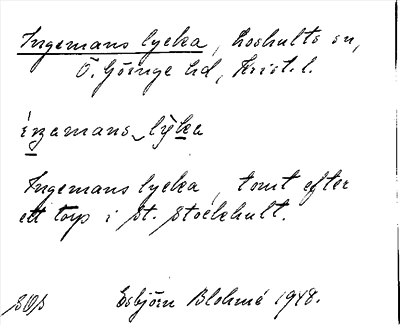 Ingemans lycka, Loshults sn,
Ö. Göinge hd, Krist. l.
íŋamans‿lỳka
Ingemans lycka, tomt efter
ett torp i St. Stockhult.
SOS Esbjörn Blohmé 1948.